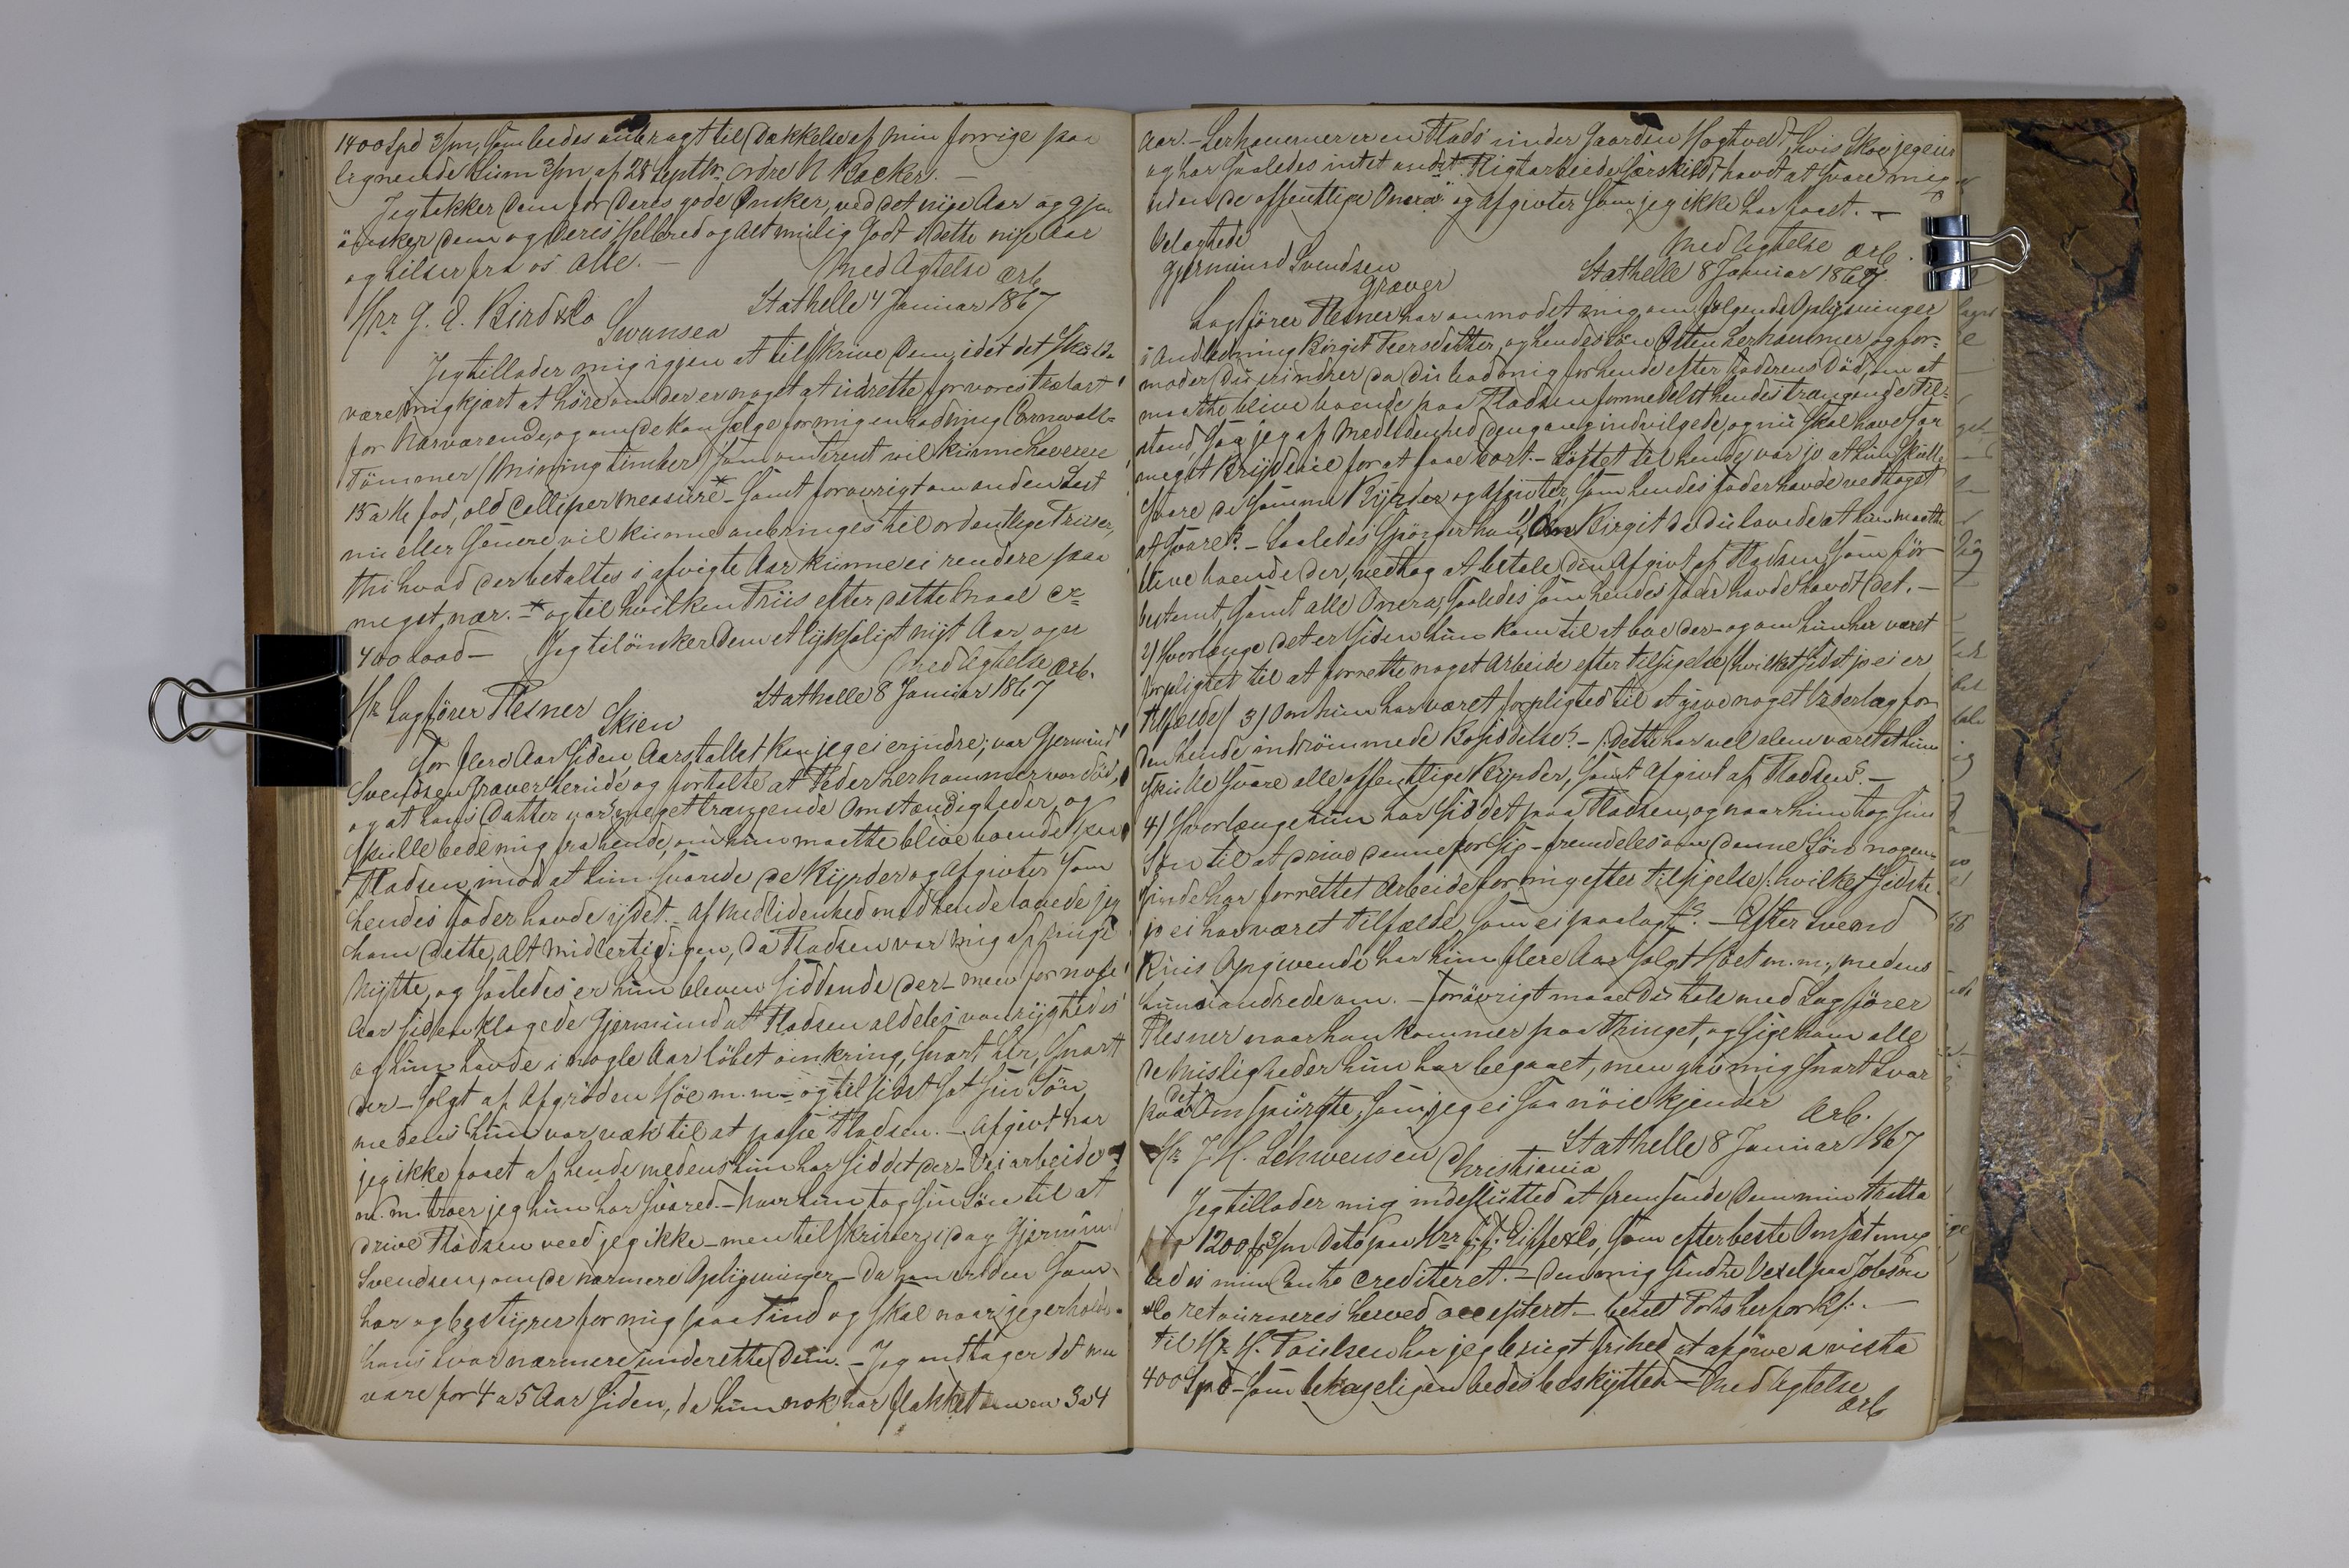 1400 Spd 3/m, som bedes anbragt til Dækkelse af min forrige paa
lignende Sum 3/m af 28 Septbr. ordre N Backer. —
Jeg takker Dem for Deres gode Ønsker, ved det nye Aar og gjen
önsker Dem og Deres Helbred og alt mulig Godt i dette nye Aar
og hilser fra os Alle. —
Med Agtelse Ærb
Hrr G. E. Bird & Co Swansea Stathelle 4 Januar 1867
Jeg tillader mig igjen at tilskrive Dem, idet det skulde
være mig kjært at höre om der er noget at udrette for vores Trælast
for Nærværende, og om De kan sælge for mig en Ladning Cornwall-
Tömmer (Mining timber) som omtrent vil kunne havere
15 a 16 fod, old Calliper measure * — samt forövrigt om anden Last
nu eller senere vil kunne anbringes til ordentlige Priser,
thi hvad der betaltes i afvigte Aar kunne ei rendere paa
meget nær. — * og til hvilken Priis efter dette Maal
400 Load — Jeg tilönsker Dem et lyksaligt nyt Aar og
Med Agtelse Ærb.
Hr Sagförer Plesner Skien Stathelle 8 Januar 1867
For flere Aar siden, Aarstallet kan jeg ei erindre, var Gjermund
Svendsen Græver herinde, og fortalte at Peder Lerhammer var död,
og at hans Datter var i meget trængende Omstændigheder, og
skulle bede mig fra hende, om hun maatte blive boende paa
Pladsen, mod at hun svarede de Byrder og Afgivter som
hendes Fader havde ydet. — Af Medlidenhed med hende lovede jeg
ham dette, alt midlertidigen, da Pladsen var mig af
Nytte, og saaledes er hun bleven siddende der — men for nogle
Aar siden klagede Gjermund at Pladsen aldeles vanrygtedes
og hun havde i nogle Aar löbet omkring, snart her, snart
der — solgt af Afgröden Höe m. m — og til sidst sat sin Sön
medens hun var væk til at passe Pladsen. — Afgivt har
jeg ikke faaet af hende medens hun har siddet der — Veiarbeide
m. m. troer jeg hun har svared. — Naar hun tog sin Sön til at
drive Pladsen veed jeg ikke — men tilskriver i Dag Gjermund
Svendsen, om de nærmere Oplysninger — da han er den som
har og bestyrer for mig paa Tind og skal naar jeg erholder
hans Svar nærmere underrette Dem. — Jeg antager det maa
være for 4 a 5 Aar siden, da hun nok har flakket om en 3 a 4
Aar. — Lerhammer er en Plads under Gaarden Hogtvedt, hvis Skov jeg eier
og har saaledes intet andet Pligtarbeide særskildt havt at svare mig
uden de offentlige Onera og Afgivter som jeg ikke har faaet. —
Med Agtelse Ærb.
Velagtede
Gjermund Svendsen Græver Stathelle 8 Januar 1867.
Sagförer Plesner har anmodet mig om fölgende Oplysninger
i Anledning Birgit Peersdatter, og hendes Sön Østen Lerhammer og for-
moder Du erindrer da Du bad mig for hende efter Faderens Död, om at
maatte blive boende paa Pladsen formedelst hendes trængende Til-
stand, som jeg af Medlidenhed dengang indvilgede, og nu skal have saa
meget Bryderie for at faae bort. — Löftet til hende var jo at hun skulle
svare de samme Byrder og Afgivter, som hendes Fader havde vedtaget
at svare? — Saaledes spörger han, 1) Om Birgit da Du lovede at hun maatte
blive boende der, vedtog at betale den Afgivt af Pladsen, som för
bestemt, samt alle Onera, saaledes som hendes Fader havde havt det. —
2) Hvorlænge det er siden hun kom til at boe der — og om hun har været
forpligtet til at forrette noget Arbeide efter Tilsigelse (hvilket sidst jo ei er
Tilfælde) 3) Om hun har været forpligted til at give noget Vederlag for
den hende indrömmede Besiddelse? — (dette har vel alene været at hun
skulle svare alle offentlige Byrder, samt Afgivt af Pladsen?. —
4) Hvorlænge hun har siddet paa Pladsen, og naar hun tog sin
Sön til at drive denne for sig — fremdeles om denne Sön nogen-
sinde har forrettet Arbeide for mig efter Tilsigelse /: hvilket sidste
jo ei har været Tilfælde, som ei paalagt? — Efter Svend
Ruis Angivende har hun flere Aar solgt Höet m. m., medens
hun vandrede om. — Forövrigt maae Du tale med Sagförer
Plesner naar han kommer paa Thinget, og sige ham alle
de Misligheder hun har begaaet, men giv mig snart Svar
paa det Omspurgte, som jeg ei saa nöie kjender Ærb.
Hr J. H. Schwensen Christiania Stathelle 8 Januar 1867
Jeg tillader mig indeslutted at fremsende Dem min Tratta
1200 £ 3/m Dato paa Hrr Eiffe & Co, som efter beste Omsætning
bedes min Conto crediteret. — Den mig sendte Vexel paa Jobson
& Co retourneres herved accepteret — betalt Porto herfor
Til Hr. H. Poulsen har jeg besiegt frihed at afgive a vista
400 Spd — som behageligen bedes beskyttet — Med Agtelse
Ærb